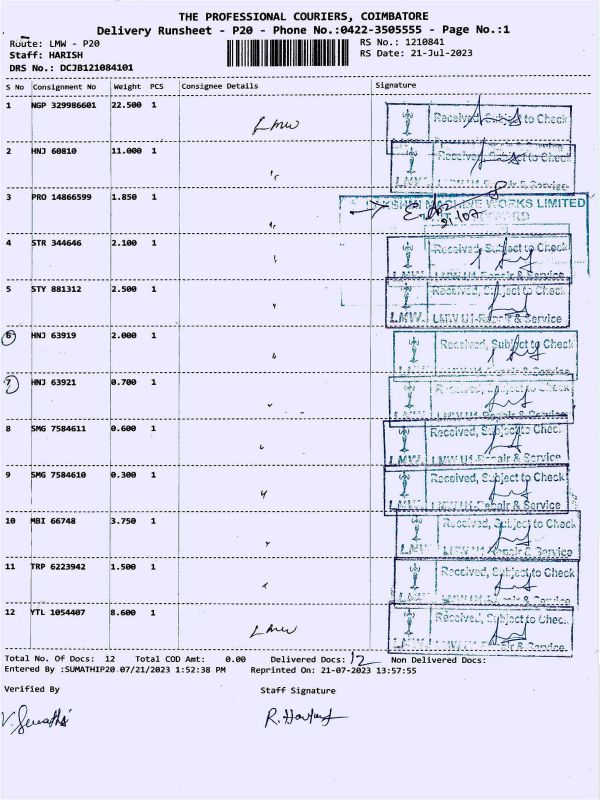 THE PROFESSIONAL COURIERS, COIMBATORE
Delivery Runsheet - P20 - Phone No.:0422-3505555 - Page No.:1
Route: LMW - P20
RS No.: 1210841
Staff: HARISH
RS Date: 21-Jul-2023
DRS No.: DCJB121084101
S No Consignment No Weight PCS Consignee Details Signature
1 NGP 329986601 22.500 1 LMW Received, Subject to Check
2 HNJ 60810 11.000 1 Received, Subject to Check
LMW LMW U1-Repair & Service
3 PRO 14866599 1.850 1 MACHINE WORKS LIMITED
21/07
4 STR 344646 2.100 1 Received, Subject to Check
LMW LMW U1-Repair & Service
5 STY 881312 2.500 1 Received, Subject to Check
LMW LMW U1-Repair & Service
6 HNJ 63919 2.000 1 Received, Subject to Check
LMW U1-Repair & Service
7 HNJ 63921 0.700 1 Received, Subject to Check
LMW LMW U1-Repair & Service
8 SMG 7584611 0.600 1 Received, Subject to Check
LMW LMW U1-Repair & Service
9 SMG 7584610 0.300 1 Received, Subject to Check
LMW LMW U1-Repair & Service
10 MBI 66748 3.750 1 Received, Subject to Check
LMW LMW U1-Repair & Service
11 TRP 6223942 1.500 1 Received, Subject to Check
LMW LMW U1-Repair & Service
12 YTL 1054407 8.600 1 LMW Received, Subject to Check
LMW LMW U1-Repair & Service
Total No. Of Docs: 12 Total COD Amt: 0.00 Delivered Docs: 12 Non Delivered Docs:
Entered By :SUMATHIP20 07/21/2023 1:52:38 PM Reprinted On: 21-07-2023 13:57:55
Verified By Staff Signature
V. Sumathi